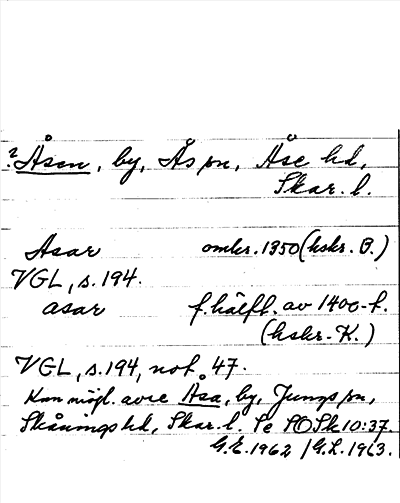 ? Åsen, by, Ås sn, Åse hd,
Skar. l.
Asar omkr. 1350 (hskr. B.)
VGL, s. 194.
asar f. hälft. av 1400-t.
(hskr. K.)
VGL, s. 194, not. 47.
Kan möjl. avse Åsa, by, Jungs sn,
Skånings hd, Skar. l. Se SOSk 10:37.
G.E. 1962 / G.L. 1963.